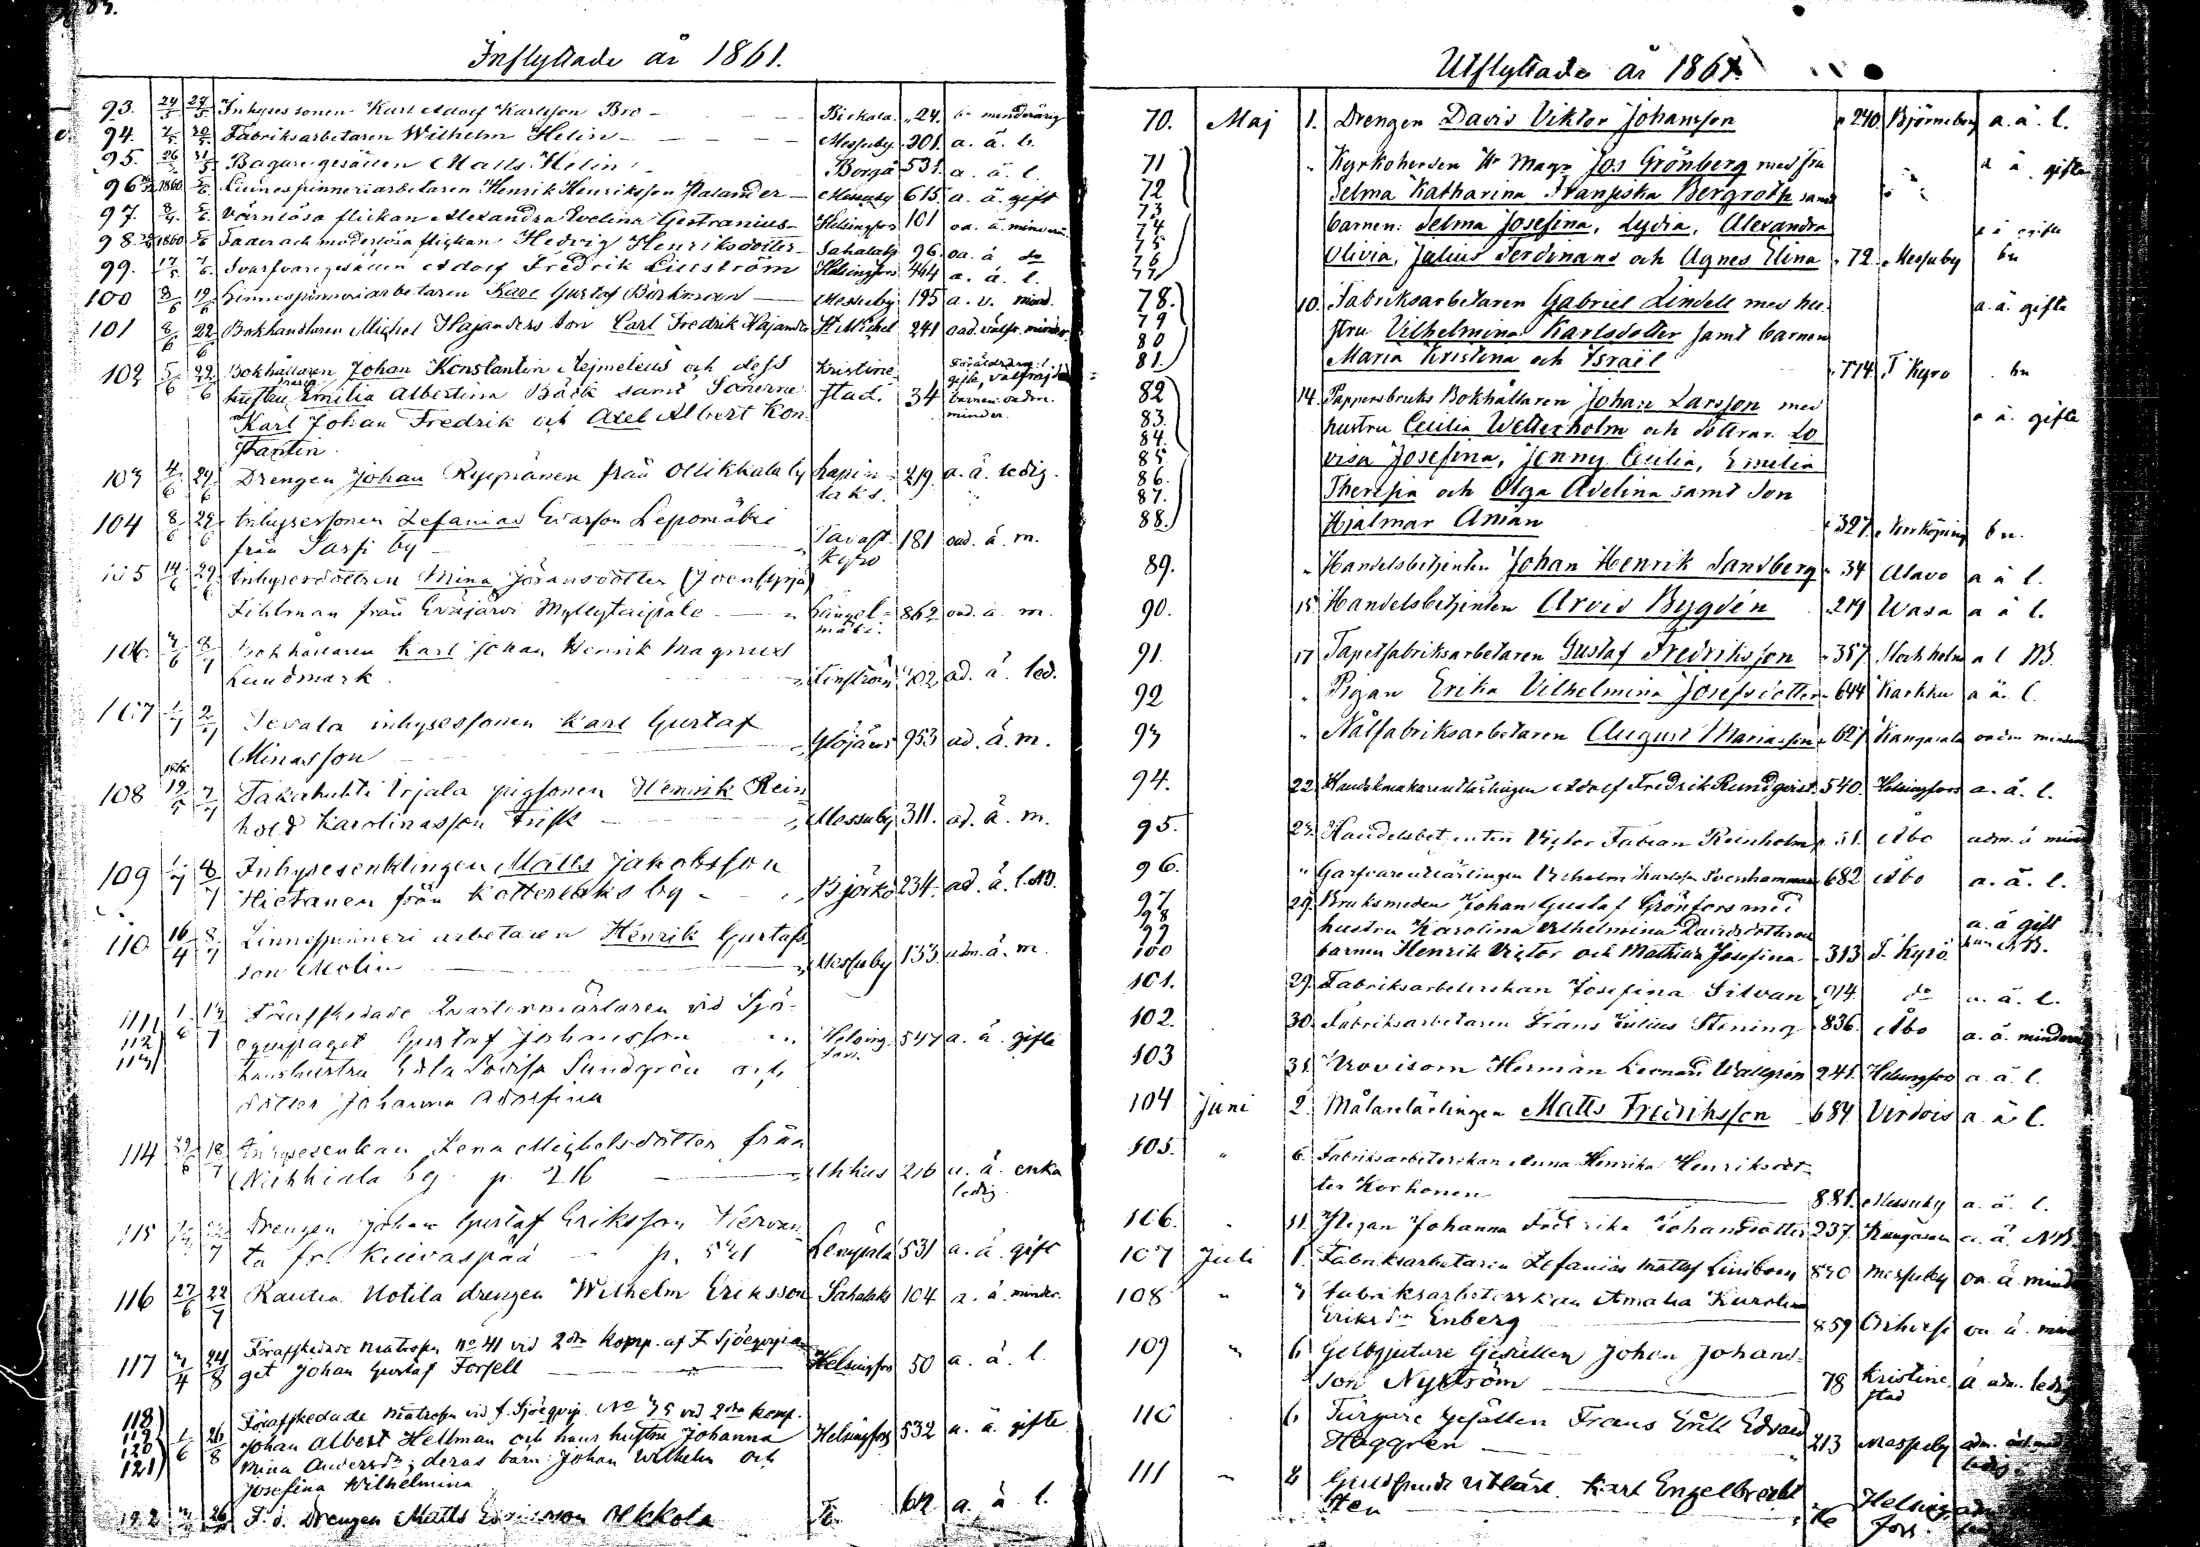 Inflyttade år 1861.
93. 24/5 27/5 Inhyses sonen Karl Adolf Karlsson Bro - Birkala. 24. minderårig
94. 7/5 30/5 Fabriksarbetaren Wilhelm Helin - Messuby. 301. a. ä. l.
95. 26/5 31/5 Bagaregesällen Matts Helin Borgå 531. a. ä. l.
96 1860 Linnespinneriarbetaren Henrik Henriksson Palander - Messuby 615. a. ä. gift
97. Värnlösa flickan Alexandra Evelina Gestranius - Helsingfors 101 oa. ä. minderå
98. 1860 Fader och moderlösa flickan Hedvig Henriksdotter - Sahalaks 96. oa. ä do
99. 17/5 Svarfvaregesällen Adolf Fredrik Lillström Helsingfors 464 a. ä. l.
100 8/6 19/6 Linnespinneriarbetaren Karl Gustaf Björkman - Messuby 195 a. v. mind.
101 8/6 22/6 Bokhandlaren Michel Hajanders son Carl Fredrik Hajander St Michel 241 oad. välfr. minder.
102 5/6 22/6 Bokhållaren Johan Konstantin Nejmeleus och dess Kristine
hustru Maria Emilia Albertina Bäck samt Sönerne stad. 34 gifte, välfräjd barnen oadm. minder.
Karl Johan Fredrik och Axel Albert Kon-
stantin.
103 4/6 29/6 Drengen Johan Ryppänen från Ollikkala by Lapin- 219. a. ä. ledig.
laks.
104 8/6 29/6 Inhysessonen Zefanias Evasson Lepomäki
från Sarfi by - Tavast- 181 oad. ä. m.
Kyro
105 14/6 29/6 Inhysesdottren Mina Jöransdotter
Lihlman från Eväjärvi Myllytaipale - Längel- 862 oad. ä. m.
mäki.
106. 7/6 8/7 Bokhållaren Karl Johan Henrik Magnus
Lundmark. 702 ad. ä. led.
107 1/7 2/7 Sevala inhysessonen Karl Gustaf
Minasson Ylöjärvi 953 ad. ä. m.
108 19/5 7/7 Takahuhti Irjala pigsonen Henrik Rein-
hold Karolinasson Frisk - Messuby 311. ad. ä. m.
109 1/7 8/7 Inhysesenklingen Matts Jakobsson
Hietanen från Kotterlaks by - Björkö 234. ad. ä. l. NB.
110 16/4 8/7 Linnespinneri arbetaren Henrik Gustafs-
son Molin - Messuby 133. adm. ä. m.
111 Förafskedade Quartermästaren vid Sjö-
112 equipaget Gustaf Johansson Helsing- 547 a. ä. gifte
113 hans hustru Edla Lovisa Sundgren och fors.
dotter Johanna Adolfina
114 18/7 Inhysesenkan Lena Michelsdotter från
Nickkiala by p. 216 - 216 a. ä. enka
ledig.
115 Drengen Johan Gustaf Eriksson Hervan-
ta fr. Kuivaspää p. 521 Lempälä 531 a. ä. gift
116 27/6 22/7 Rautia Uotila drengen Wilhelm Eriksson Sahalaks 104 a. ä. minder.
117 4/4 24/8 Förafskedade matrosen no 41 vid 2dra komp. af F. Sjöeqvipa-
get Johan Gustaf Forsell - Helsingfors 50 a. ä. l.
118 Förafskedade matrosen vid f. Sjöeqvip. No 75 vid 2dra komp.
119 1/6 26/8 Johan Albert Hellman och hans hustru Johanna Helsingfors 532 a. ä. gifte
120 Mina Andersdr; deras barn: Johan Wilhelm och
121 Josefina Wilhelmina
122 F. d. Drengen Matts Olkkola 612 a. ä. l.
Utflyttade år 1861.
70. Maj 1. Drengen David Viktor Johansson 240 Björneborg a. ä. l.
71 " Kyrkoherden Hr Magr Jos Grönberg med fru a ä gifte
72 Selma Katharina Franziska Bergroth samt
73
74 barnen: Selma Josefina, Lydia, Alexandra
75
76 Olivia, Julius Ferdinand och Agnes Elina 72. Messuby bn
77
78. 10. Fabriksarbetaren Gabriel Lindell med hu- a. ä. gifte
79 stru Vilhelmina Karlsdotter samt barnen
80
81. Maria Kristina och Israel 774. T Kyro bn
82 14. Pappersbruks Bokhållaren Johan Larsson med a ä. gifte
83. hustru Cecilia Wetterholm och döttrar. Lo
84.
85 visa Josefina, Jenny Cecilia, Emilia
86.
87. Theresia och Olga Adelina samt Son
88. Hjalmar Aman 327. Norrköping bn.
89. " Handelsbetjenten Johan Henrik Sandberg 34 Alavo a ä l.
90. 15 Handelsbetjenten Arvid Bygdén 219 Wasa a ä l.
91. 17 Tapetfabriksarbetaren Gustaf Fredriksson 357 Stockholm a l NB.
92 " Pigan Erika Vilhelmina Josefsdotter 644 Karkku a ä. l.
93 " Nålfabriksarbetaren August Mariasson 627 Kangasala oadm minder
94. 22. Handskmakareutlärlingen Adolf Fredrik Rundqvist. 540. Helsingfors a. ä. l.
95. Handelsbetjenten Victor Fabian Reinholm 51 Åbo adm. ä mind
96. " Garfvareutlärlingen Vilhelm Karlsson Svenhammar 682 Åbo a. ä. l.
97 29. Bruksmeden Johan Gustaf Grönfors med
98 hustru Karolina Vilhelmina Davidsdotter a. ä gift
99
100 barnen Henrik Victor och Mathilda Josefina. 313 T. Kyrö NB.
101. 29. Fabriksarbeterskan Josefina Silvan do a. ä. l.
102. 30. Fabriksarbetaren Frans Julius Stening 836. Åbo a. ä. minderå
103 31. Provisorn Herman Leonard Wallgrén 241. Helsingfors a. ä. l.
104 Juni 2. Målarelärlingen Matts Fredriksson 684 Virdois a. ä. l.
105. " 6. Fabriksarbeterskan Anna Henrika Henriksdot-
ter Korhonen - 881. Messuby a. ä. l.
106. " 11. Pigan Johanna Fredrika Johansdotter 237. Kangasala a. ä. NB.
107 Juli 1. Fabriksarbetaren Zefanias Mattss Lindbom 840 Messuby oa. ä. mind
108 " Fabriksarbeterskan Amalia Karolina
Eriksdr Enberg - 859 Orihvesi oa. ä. mind
109 " 6 Gelbgjutare Gesällen Johan Johans-
son Nyström - 78 Kristine a adm. ledig
stad
110 6 Färgare gesällen Frans Erik Edvard
Häggren - 213 Messuby adm. ledig
111 " 8 Guldsmeds utlärl. Karl Engelbrecht
Sten Helsing-
fors.